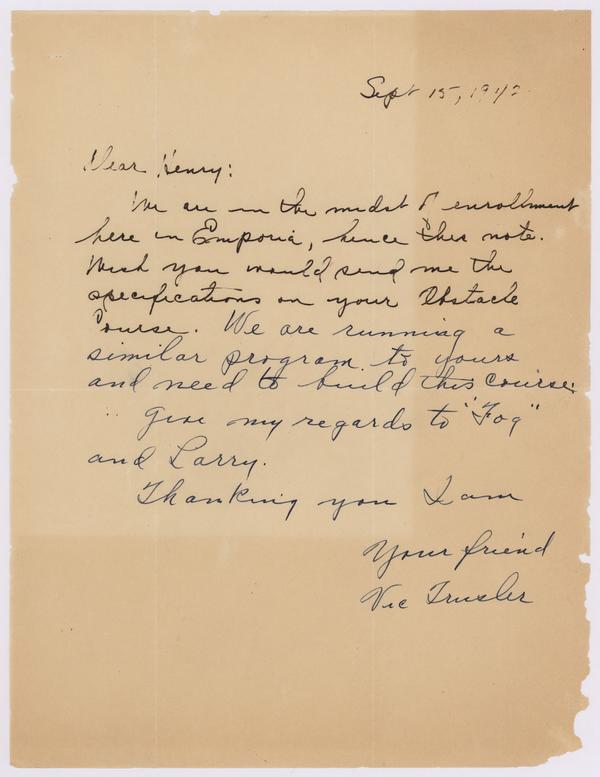 Sept 15, 1942
Dear Henry:
We are in the midst of enrollment
here in Emporia, hence this note.
Wish you would send me the
specifications on your Obstacle
Course. We are running a
similar program to yours
and need to build this course.
Give my regards to "Fog"
and Larry.
Thanking you I am
Your friend
Vic Trusler